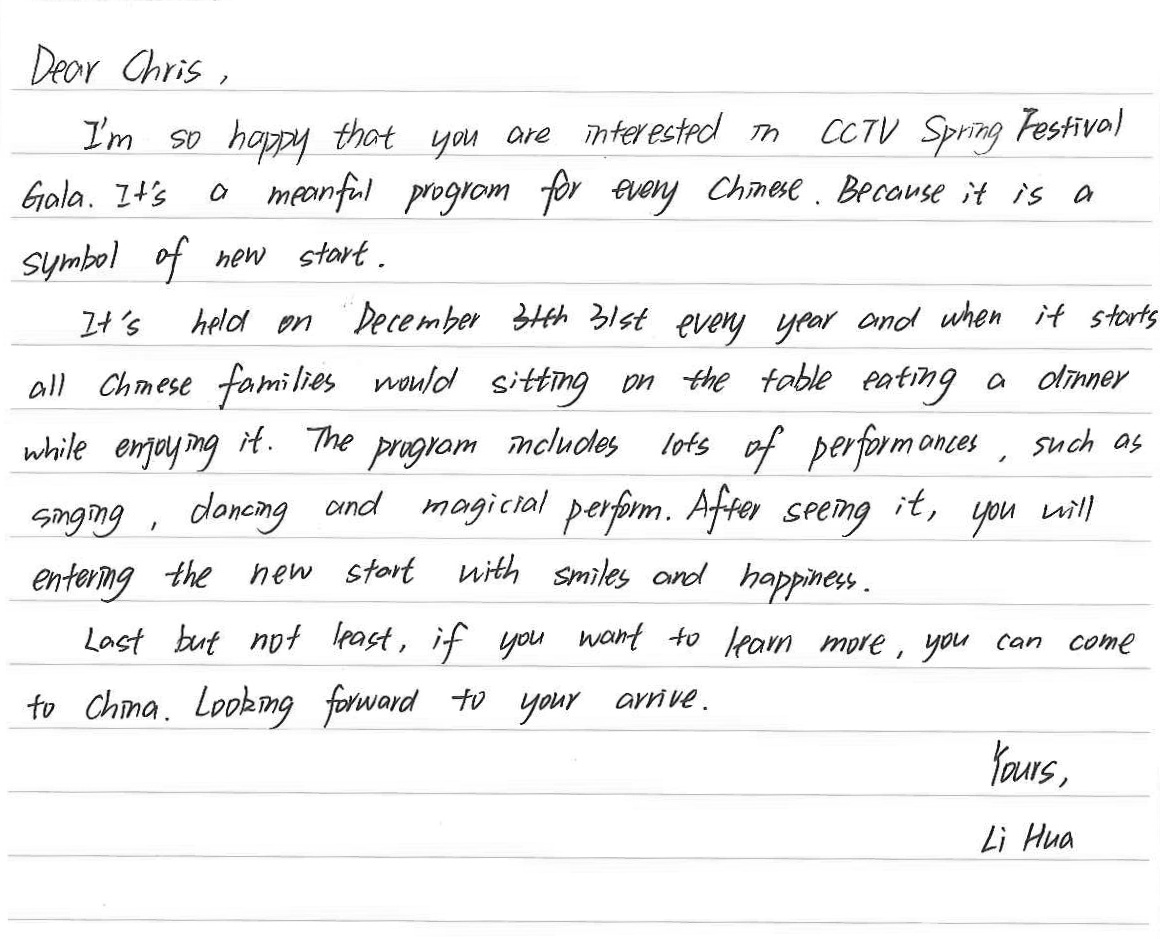 Dear Chris,
I'm so happy that you are interested in CCTV Spring Festival
Gala. It's a meanful program for every Chinese. Because it is a
symbol of new start.
It's held on December 31th 31st every year and when it starts
all Chinese families would sitting on the table eating a dinner
while enjoying it. The program includes lots of performances, such as
singing, dancing and magicial perform. After seeing it, you will
entering the new start with smiles and happiness.
Last but not least, if you want to learn more, you can come
to China. Looking forward to your arrive.
Yours,
Li Hua